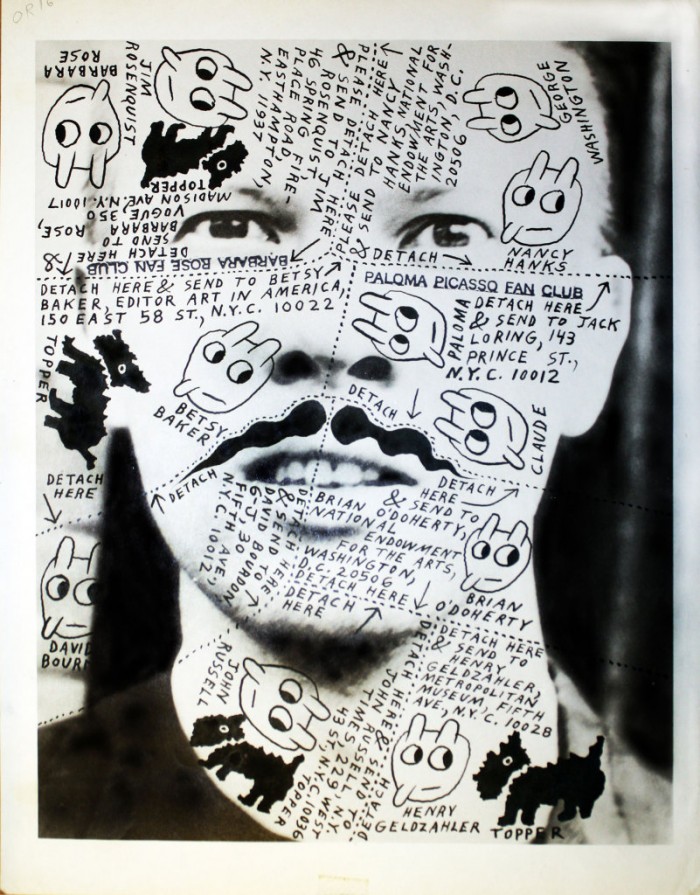 OR16
BARBARA
ROSE
JIM
ROSENQUIST
PLEASE DETACH HERE
& SEND TO JIM
ROSENQUIST,
46 SPRING FIRE-
PLACE ROAD,
EASTHAMPTON,
N.Y. 11937
PLEASE DETACH HERE
& SEND TO NANCY
HANKS, NATIONAL
ENDOWMENT FOR
THE ARTS, WASH-
INGTON, D.C.
20506
GEORGE
WASHINGTON
TOPPER
DETACH HERE &
SEND TO
BARBARA ROSE,
VOGUE, 350
MADISON AVE. N.Y. 10017
BARBARA ROSE FAN CLUB
DETACH
NANCY
HANKS
DETACH HERE & SEND TO BETSY
BAKER, EDITOR ART IN AMERICA,
150 EAST 58 ST., N.Y.C. 10022
PALOMA PICASSO FAN CLUB
PALOMA
DETACH HERE
& SEND TO JACK
LORING, 143
PRINCE ST.,
N.Y.C. 10012
TOPPER
BETSY
BAKER
DETACH
CLAUDE
DETACH
HERE
DETACH
DETACH
HERE
DETACH HERE
& SEND TO
DAVID BOURDON
GTJ, 30
FIFTH AVE,
N.Y.C. 10012
& SEND TO
BRIAN O'DOHERTY,
NATIONAL
ENDOWMENT
FOR THE ARTS,
WASHINGTON,
D.C. 20506
DETACH HERE
DETACH
HERE
BRIAN
O'DOHERTY
DAVID
BOURD
JOHN
RUSSELL
DETACH HERE
& SEND TO
HENRY
GELDZAHLER,
METROPOLITAN
MUSEUM, FIFTH
AVE, N.Y.C. 10028
DETACH HERE & SEND TO
JOHN RUSSELL, N.Y.
TIMES, 229 WEST
43 ST. N.Y.C. 10036
DETACH
TOPPER
HENRY
GELDZAHLER
TOPPER